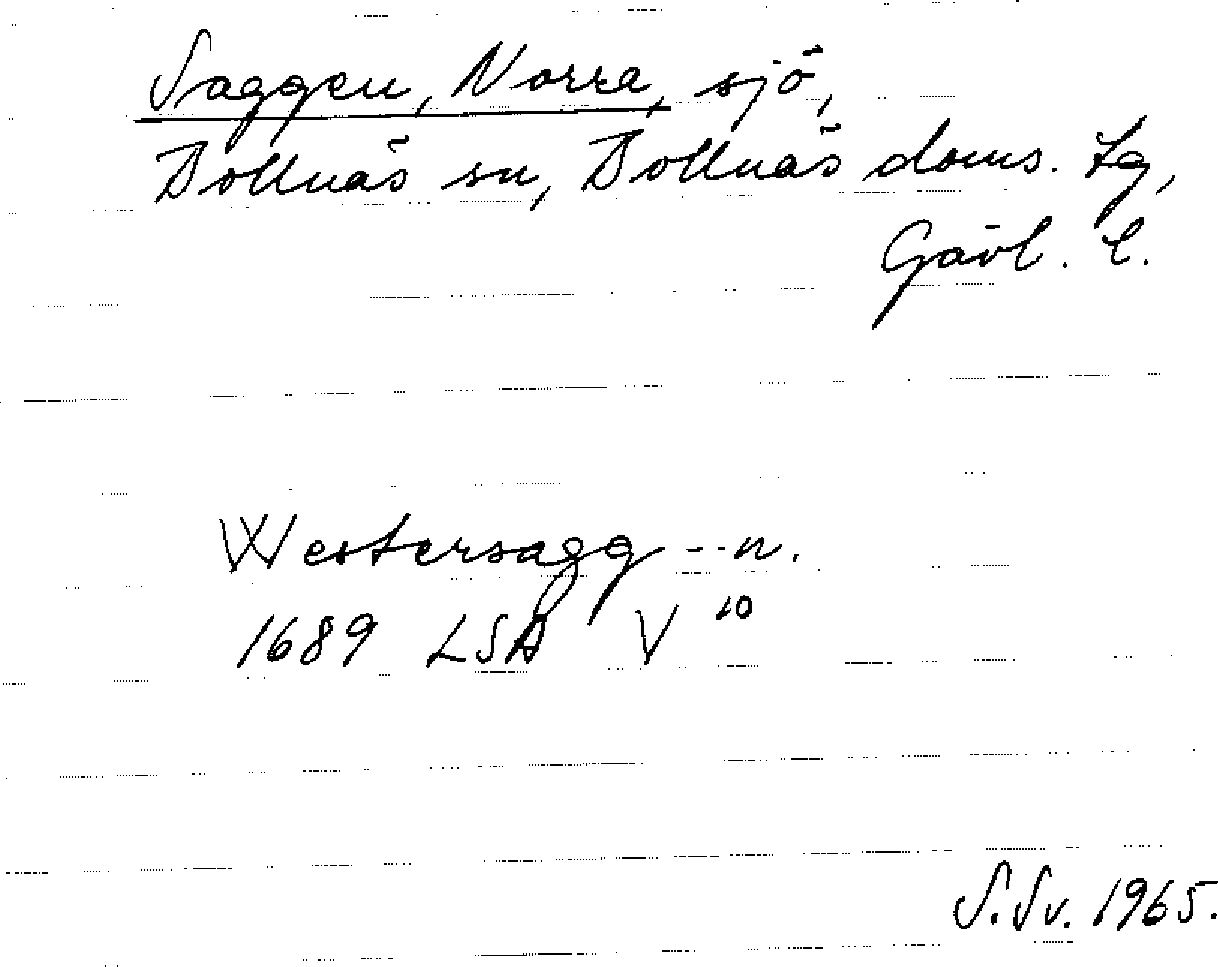 Saggen, Norra, sjö,
Bollnäs sn, Bollnäs doms. lg,
Gävl. l.
Westersagg --n.
1689 LSA V 10
S.Sv. 1965.